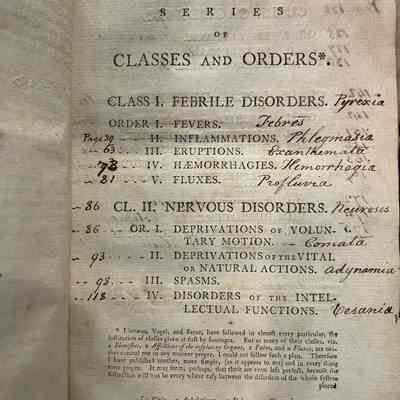 SERIES
OF
CLASSES AND ORDERS*.
CLASS I. FEBRILE DISORDERS. Pyrexia
ORDER I. FEVERS. Febres
Page 39 -- II. INFLAMMATIONS. Phlegmasia
-- 63. -- III. ERUPTIONS. Exanthemata
-- IV. HÆMORRHAGIES. Hemorrhagia
-- 81 -- V. FLUXES. Profluvia
-- 86 CL. II. NERVOUS DISORDERS. Neuroses
-- 86 -- OR. I. DEPRIVATIONS OF VOLUN-
TARY MOTION. -- Comata
-- 93 -- II. DEPRIVATIONS OF THE VITAL
OR NATURAL ACTIONS. Adynamia
-- 98 -- III. SPASMS.
-- 118 -- IV. DISORDERS OF THE INTEL-
LECTUAL FUNCTIONS. Vesania
*
* Linnæus, Vogel, and Sagar, have followed in almost every particular, the
institution of classes given at first by Sauvages. But as many of their classes, viz.
not connected in any manner proper, I could not follow such a plan. Therefore
I have published another, more simple, (as it appears to me) and in every thing
more proper. It may seem, perhaps, that there are even left perfect, because the
distinction will not be every where easy between the disorders of the whole system